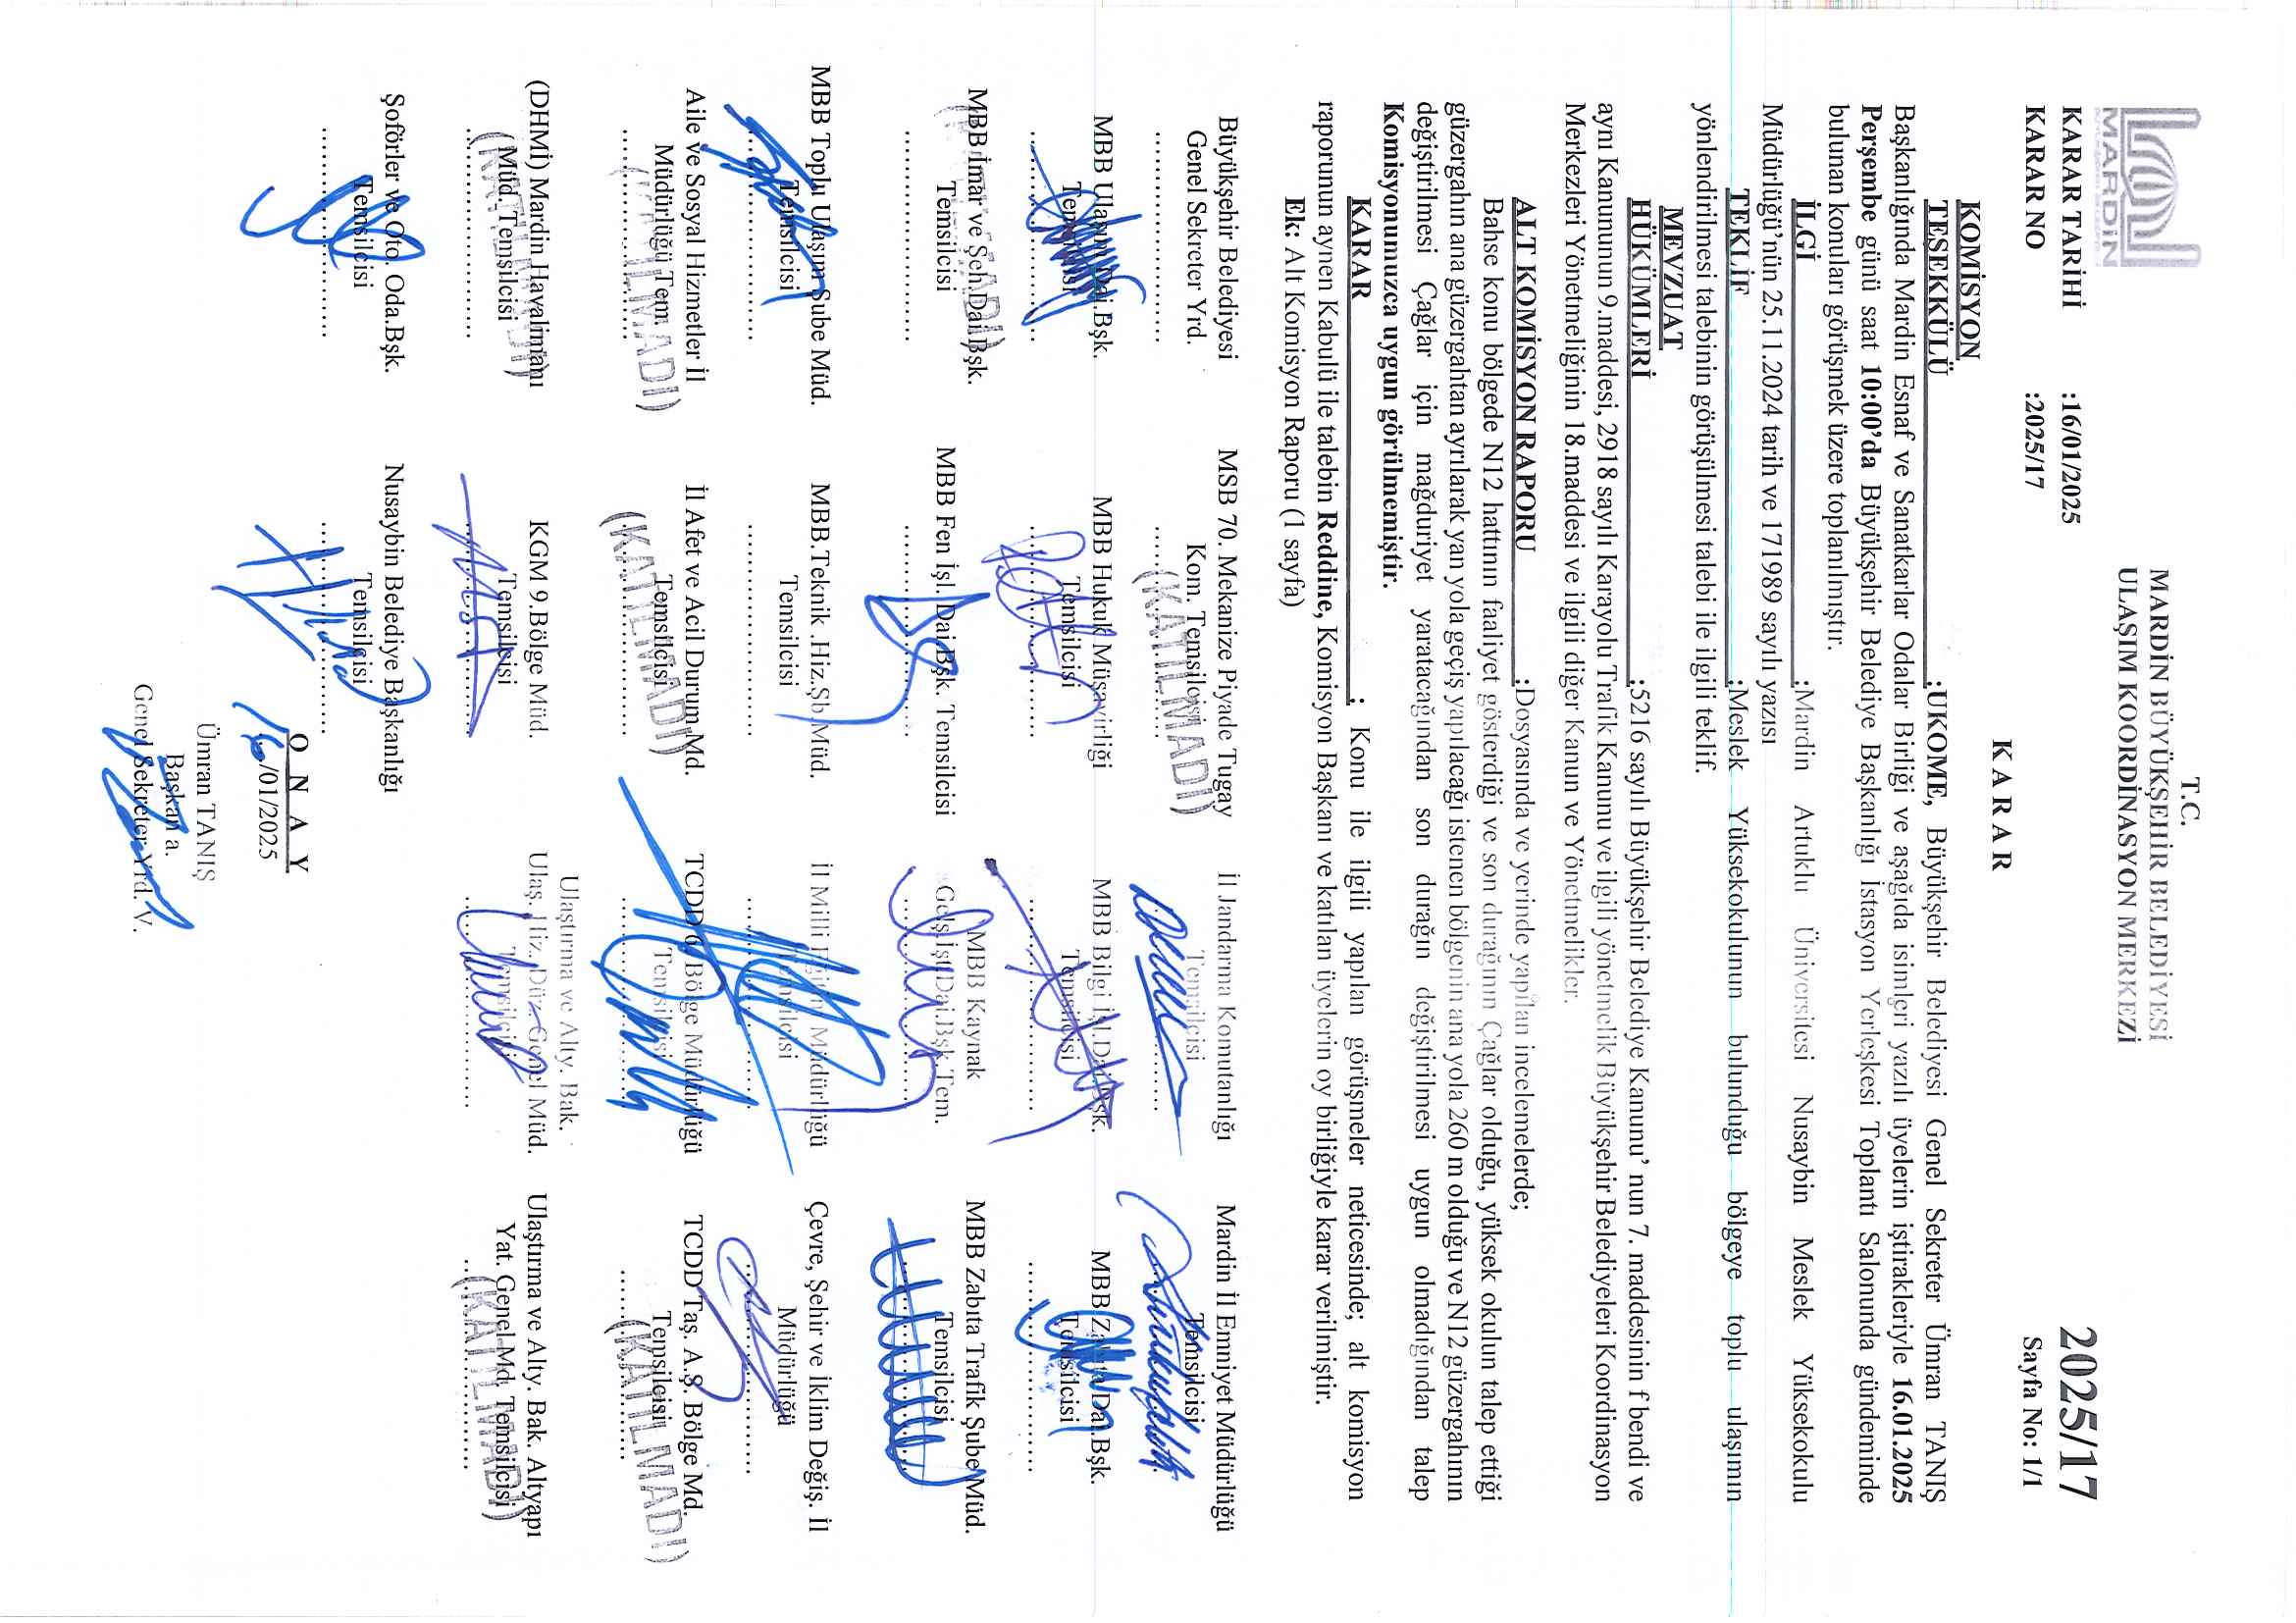 MARDİN
T.C.
MARDİN BÜYÜKŞEHİR BELEDİYESİ
ULAŞIM KOORDİNASYON MERKEZİ
2025/17
KARAR TARİHİ :16/01/2025
KARAR NO :2025/17
Sayfa No: 1/1
K A R A R
KOMİSYON
TEŞEKKÜLÜ :UKOME, Büyükşehir Belediyesi Genel Sekreter Ümran TANIŞ
Başkanlığında Mardin Esnaf ve Sanatkarlar Odalar Birliği ve aşağıda isimleri yazılı üyelerin iştirakleriyle 16.01.2025
Perşembe günü saat 10:00’da Büyükşehir Belediye Başkanlığı İstasyon Yerleşkesi Toplantı Salonunda gündeminde
bulunan konuları görüşmek üzere toplanılmıştır.
İLGİ :Mardin Artuklu Üniversitesi Nusaybin Meslek Yüksekokulu
Müdürlüğü’nün 25.11.2024 tarih ve 171989 sayılı yazısı
TEKLİF :Meslek Yüksekokulunun bulunduğu bölgeye toplu ulaşımın
yönlendirilmesi talebinin görüşülmesi talebi ile ilgili teklif.
MEVZUAT
HÜKÜMLERİ :5216 sayılı Büyükşehir Belediye Kanunu’ nun 7. maddesinin f bendi ve
aynı Kanununun 9.maddesi, 2918 sayılı Karayolu Trafik Kanunu ve ilgili yönetmelik Büyükşehir Belediyeleri Koordinasyon
Merkezleri Yönetmeliğinin 18.maddesi ve ilgili diğer Kanun ve Yönetmelikler.
ALT KOMİSYON RAPORU :Dosyasında ve yerinde yapılan incelemelerde;
Bahse konu bölgede N12 hattının faaliyet gösterdiği ve son durağının Çağlar olduğu, yüksek okulun talep ettiği
güzergahın ana güzergahtan ayrılarak yan yola geçiş yapılacağı istenen bölgenin ana yola 260 m olduğu ve N12 güzergahının
değiştirilmesi Çağlar için mağduriyet yaratacağından son durağın değiştirilmesi uygun olmadığından talep
Komisyonumuzca uygun görülmemiştir.
KARAR : Konu ile ilgili yapılan görüşmeler neticesinde; alt komisyon
raporunun aynen Kabulü ile talebin Reddine, Komisyon Başkanı ve katılan üyelerin oy birliğiyle karar verilmiştir.
Ek: Alt Komisyon Raporu (1 sayfa)
Büyükşehir Belediyesi
Genel Sekreter Yrd.
MSB 70. Mekanize Piyade Tugay
Kom. Temsilcisi
(KATILMADI)
İl Jandarma Komutanlığı
Temsilcisi
Mardin İl Emniyet Müdürlüğü
Temsilcisi
MBB Ulaşım Dai.Bşk.
Temsilcisi
MBB Hukuk Müşavirliği
Temsilcisi
MBB Bilgi İşl.Dai.Bşk.
Temsilcisi
MBB Zabıta Dai.Bşk.
Temsilcisi
MBB İmar ve Şeh.Dai.Bşk.
Temsilcisi
(KATILMADI)
MBB Fen İşl. Dai.Bşk. Temsilcisi
MBB Kaynak
Geliş.İşt.Dai.Bşk.Tem.
MBB Zabıta Trafik Şube Müd.
Temsilcisi
MBB Toplu Ulaşım Şube Müd.
Temsilcisi
MBB.Teknik .Hiz.Şb.Müd.
Temsilcisi
İl Milli Eğitim Müdürlüğü
Temsilcisi
Çevre, Şehir ve İklim Değiş. İl
Müdürlüğü
Aile ve Sosyal Hizmetler İl
Müdürlüğü Tem.
(KATILMADI)
İl Afet ve Acil Durum Md.
Temsilcisi
(KATILMADI)
TCDD 6 Bölge Müdürlüğü
Temsilcisi
TCDD Taş. A.Ş. Bölge Md.
Temsilcisi
(KATILMADI)
(DHMİ) Mardin Havalimanı
Müd. Temsilcisi
(KATILMADI)
KGM 9.Bölge Müd.
Temsilcisi
Ulaştırma ve Alty. Bak.
Ulaş. Hiz. Düz. Genel Müd.
Temsilcisi
Ulaştırma ve Alty. Bak. Altyapı
Yat. Genel Md. Temsilcisi
(KATILMADI)
Şoförler ve Oto. Oda.Bşk.
Temsilcisi
Nusaybin Belediye Başkanlığı
Temsilcisi
O N A Y
16/01/2025
Ümran TANIŞ
Başkan a.
Genel Sekreter Yrd. V.